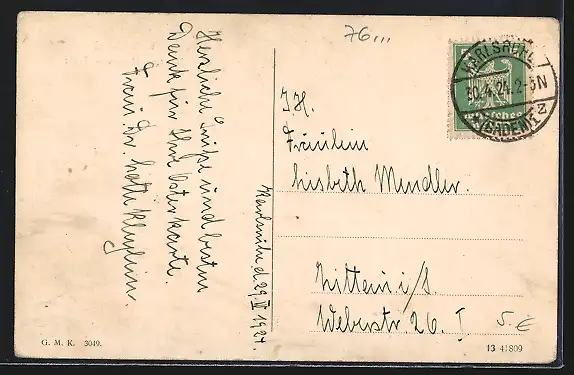 76...
Herzliche Grüße und besten
Dank für Ihre Osterkarte.
Frau Dr. Lotte
Karlsruhe d. 29. IV 1924.
I. H.
Fräulein
Lisbeth Mendler.
Zittau i/S.
Weberstr 26. I
5.€
KARLSRUHE
30.4.24. 2-3N
G. M. K. 3049.
13 41809